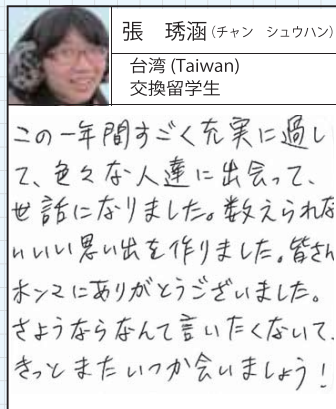 張　琇涵（チャン　シュウハン）
台湾 (Taiwan)
交換留学生
この一年間すごく充実に過し
て、色々な人達に出会って、
世話になりました。数えられな
いいい思い出を作りました。皆さん
ホンマにありがとうございました。
さようならなんて言いたくないて、
きっとまたいつか会いましょう！